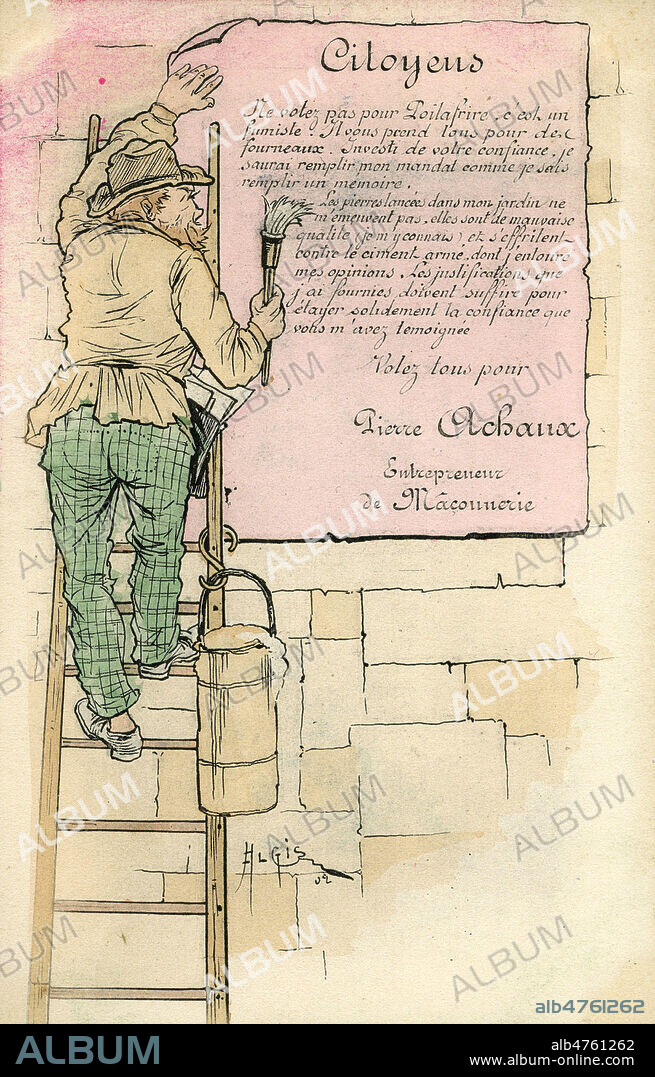 Citoyens
Ne votez pas pour Poilafrire, c'est un
fumiste ! Il vous prend tous pour des
fourneaux. Investi de votre confiance, je
saurai remplir mon mandat comme je sais
remplir un mémoire.
Les pierres lancées dans mon jardin ne
m'émeuvent pas, elles sont de mauvaise
qualité (je m'y connais) et s'effritent
contre le ciment armé, dont j'entoure
mes opinions. Les justifications que
j'ai fournies doivent suffire pour
étayer solidement la confiance que
vous m'avez témoignée
Votez tous pour
Pierre Achaux
Entrepreneur
de Mâçonnerie
ALGIS
02
ALBUM
alb4761262
ALBUM
alb4761262
www.album-online.com